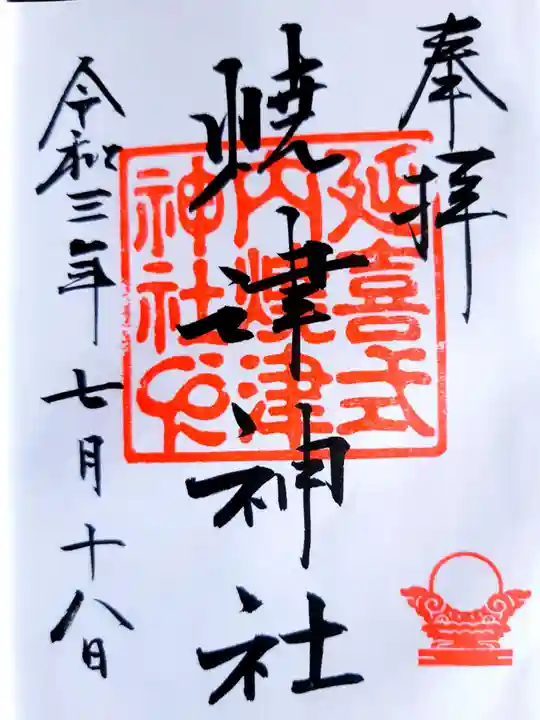 奉拝
延喜式
内焼津
神社之
焼津神社
令和三年七月十八日